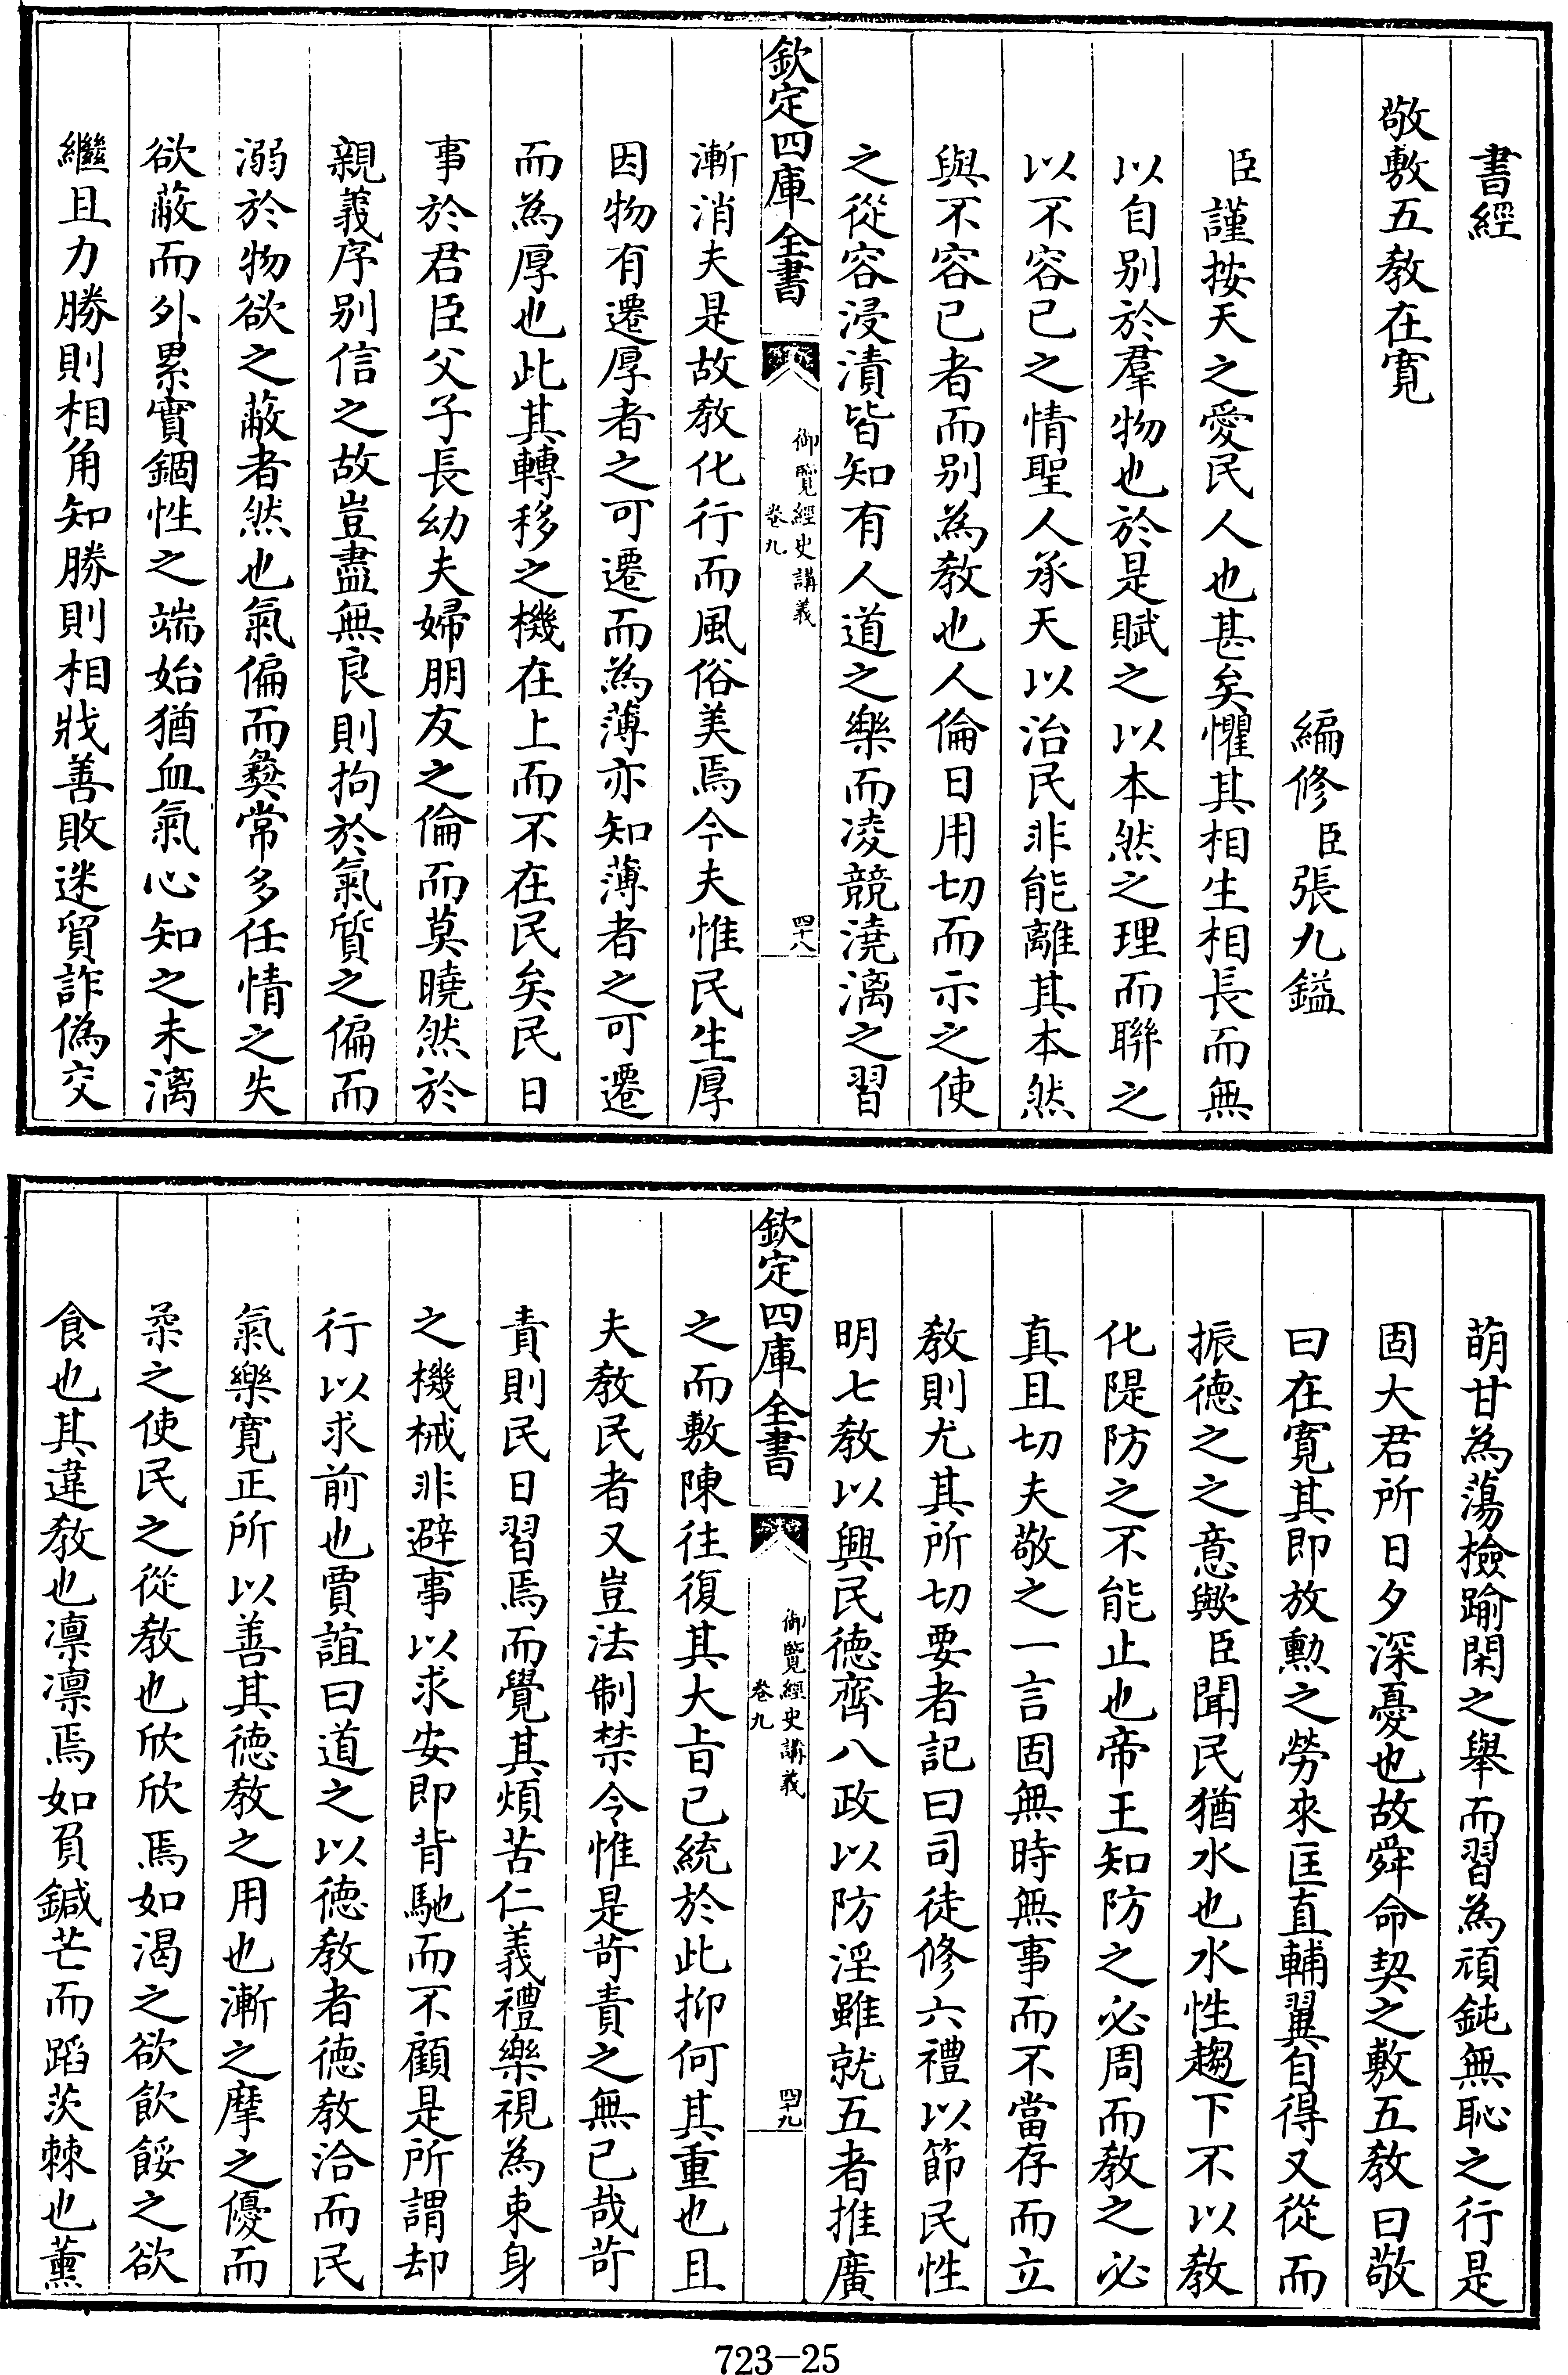 書經
敬敷五敎在寛
編修臣張九鎰
臣謹按天之愛民人也甚矣懼其相生相長而無
以自别於羣物也於是賦之以本然之理而聯之
以不容已之情聖人承天以治民非能離其本然
與不容已者而别為敎也人倫日用切而示之使
之從容浸漬皆知有人道之樂而凌競澆漓之習
欽定四庫全書
御覽經史講義
卷九
四十八
漸消夫是故敎化行而風俗美焉今夫惟民生厚
因物有遷厚者之可遷而為薄亦知薄者之可遷
而為厚也此其轉移之機在上而不在民矣民日
事於君臣父子長幼夫婦朋友之倫而莫曉然於
親義序别信之故豈盡無良則拘於氣質之偏而
溺於物欲之蔽者然也氣偏而彛常多任情之失
欲蔽而外累實錮性之端始猶血氣心知之未漓
繼且力勝則相角知勝則相戕善敗迷貿詐偽交
萌甘為蕩檢踰閑之舉而習為頑鈍無恥之行是
固大君所日夕深憂也故舜命契之敷五敎曰敬
曰在寛其即放勲之勞來匡直輔翼自得又從而
振德之之意歟臣聞民猶水也水性趨下不以敎
化隄防之不能止也帝王知防之必周而敎之必
真且切夫敬之一言固無時無事而不當存而立
敎則尤其所切要者記曰司徒修六禮以節民性
明七敎以興民德齊八政以防淫雖就五者推廣
欽定四庫全書
御覽經史講義
卷九
四十九
之而敷陳往復其大㫖已統於此抑何其重也且
夫敎民者又豈法制禁令惟是苛責之無已哉苛
責則民日習焉而覺其煩苦仁義禮樂視為束身
之機械非避事以求安即背馳而不顧是所謂却
行以求前也賈誼曰道之以德敎者德敎洽而民
氣樂寛正所以善其德敎之用也漸之摩之優而
柔之使民之從敎也欣欣焉如渴之欲飲餒之欲
食也其違敎也凛凛焉如負鍼芒而蹈茨棘也薰
723-25